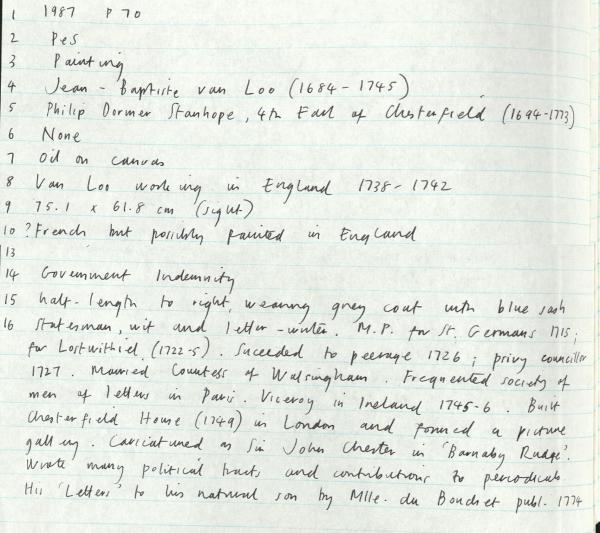 1 1987 P 70
2 Pes
3 Painting
4 Jean-Baptiste van Loo (1684-1745)
5 Philip Dormer Stanhope, 4th Earl of Chesterfield (1694-1773)
6 None
7 Oil on canvas
8 Van Loo working in England 1738-1742
9 75.1 x 61.8 cm (sight)
10 ? French but possibly painted in England
13
14 Government Indemnity
15 half-length to right, wearing grey coat with blue sash
16 Statesman, wit and letter-writer. M.P. for St. Germans 1715;
for Lostwithiel (1722-5). Suceeded to peerage 1726; privy councillor
1727. Married Countess of Walsingham. Frequented society of
men of letters in Paris. Viceroy in Ireland 1745-6. Built
Chesterfield House (1749) in London and formed a picture
gallery. Caricatured as Sir John Chester in 'Barnaby Rudge'.
Wrote many political tracts and contributions to periodicals
His 'Letters' to his natural son by Mlle. du Bouchet publ. 1774